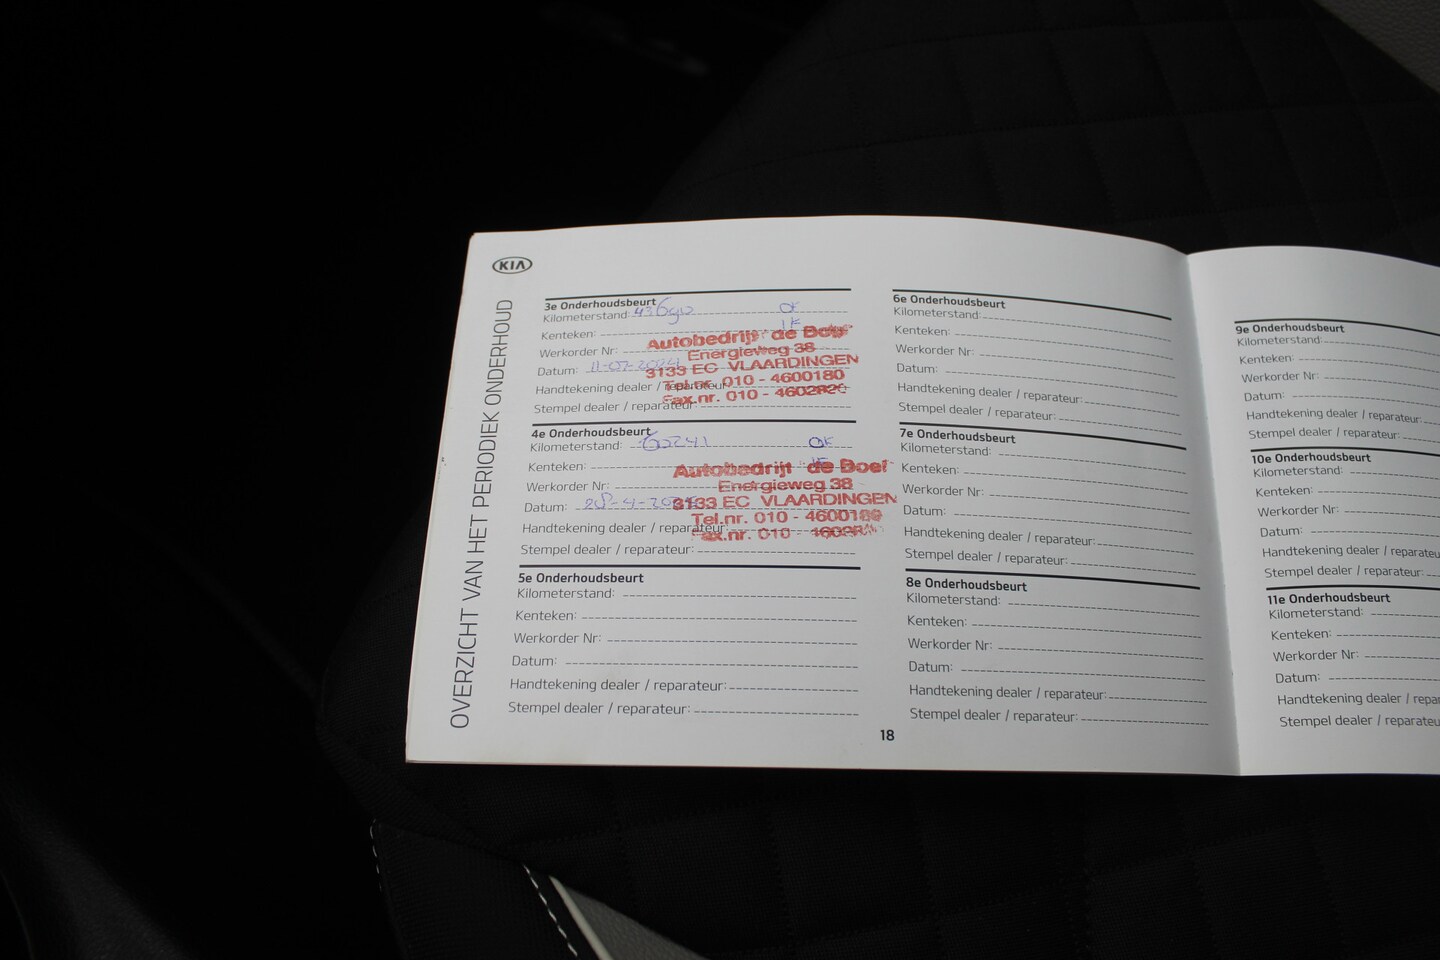 KIA
OVERZICHT VAN HET PERIODIEK ONDERHOUD
3e Onderhoudsbeurt
Kilometerstand:
OK
Kenteken:
Werkorder Nr:
Datum: 11-07-2024
Handtekening dealer / reparateur
Stempel dealer / reparateur:
Autobedrijf de Boer
Energieweg 38
3133 EC VLAARDINGEN
Tel.nr. 010 - 4600180
Fax.nr. 010 - 4602820
4e Onderhoudsbeurt
Kilometerstand: 60241
OK
Kenteken:
Werkorder Nr:
Datum:
Handtekening dealer / reparateur:
Stempel dealer / reparateur:
Autobedrijf de Boer
Energieweg 38
3133 EC VLAARDINGEN
Tel.nr. 010 - 4600180
Fax.nr. 010 -
5e Onderhoudsbeurt
Kilometerstand:
Kenteken:
Werkorder Nr:
Datum:
Handtekening dealer / reparateur:
Stempel dealer / reparateur:
6e Onderhoudsbeurt
Kilometerstand:
Kenteken:
Werkorder Nr:
Datum:
Handtekening dealer / reparateur:
Stempel dealer / reparateur:
7e Onderhoudsbeurt
Kilometerstand:
Kenteken:
Werkorder Nr:
Datum:
Handtekening dealer / reparateur:
Stempel dealer / reparateur:
8e Onderhoudsbeurt
Kilometerstand:
Kenteken:
Werkorder Nr:
Datum:
Handtekening dealer / reparateur:
Stempel dealer / reparateur:
18
9e Onderhoudsbeurt
Kilometerstand:
Kenteken:
Werkorder Nr:
Datum:
Handtekening dealer / reparateur:
Stempel dealer / reparateur:
10e Onderhoudsbeurt
Kilometerstand:
Kenteken:
Werkorder Nr:
Datum:
Handtekening dealer / reparateu
Stempel dealer / reparateur:
11e Onderhoudsbeurt
Kilometerstand:
Kenteken:
Werkorder Nr:
Datum:
Handtekening dealer / repa
Stempel dealer / reparateu